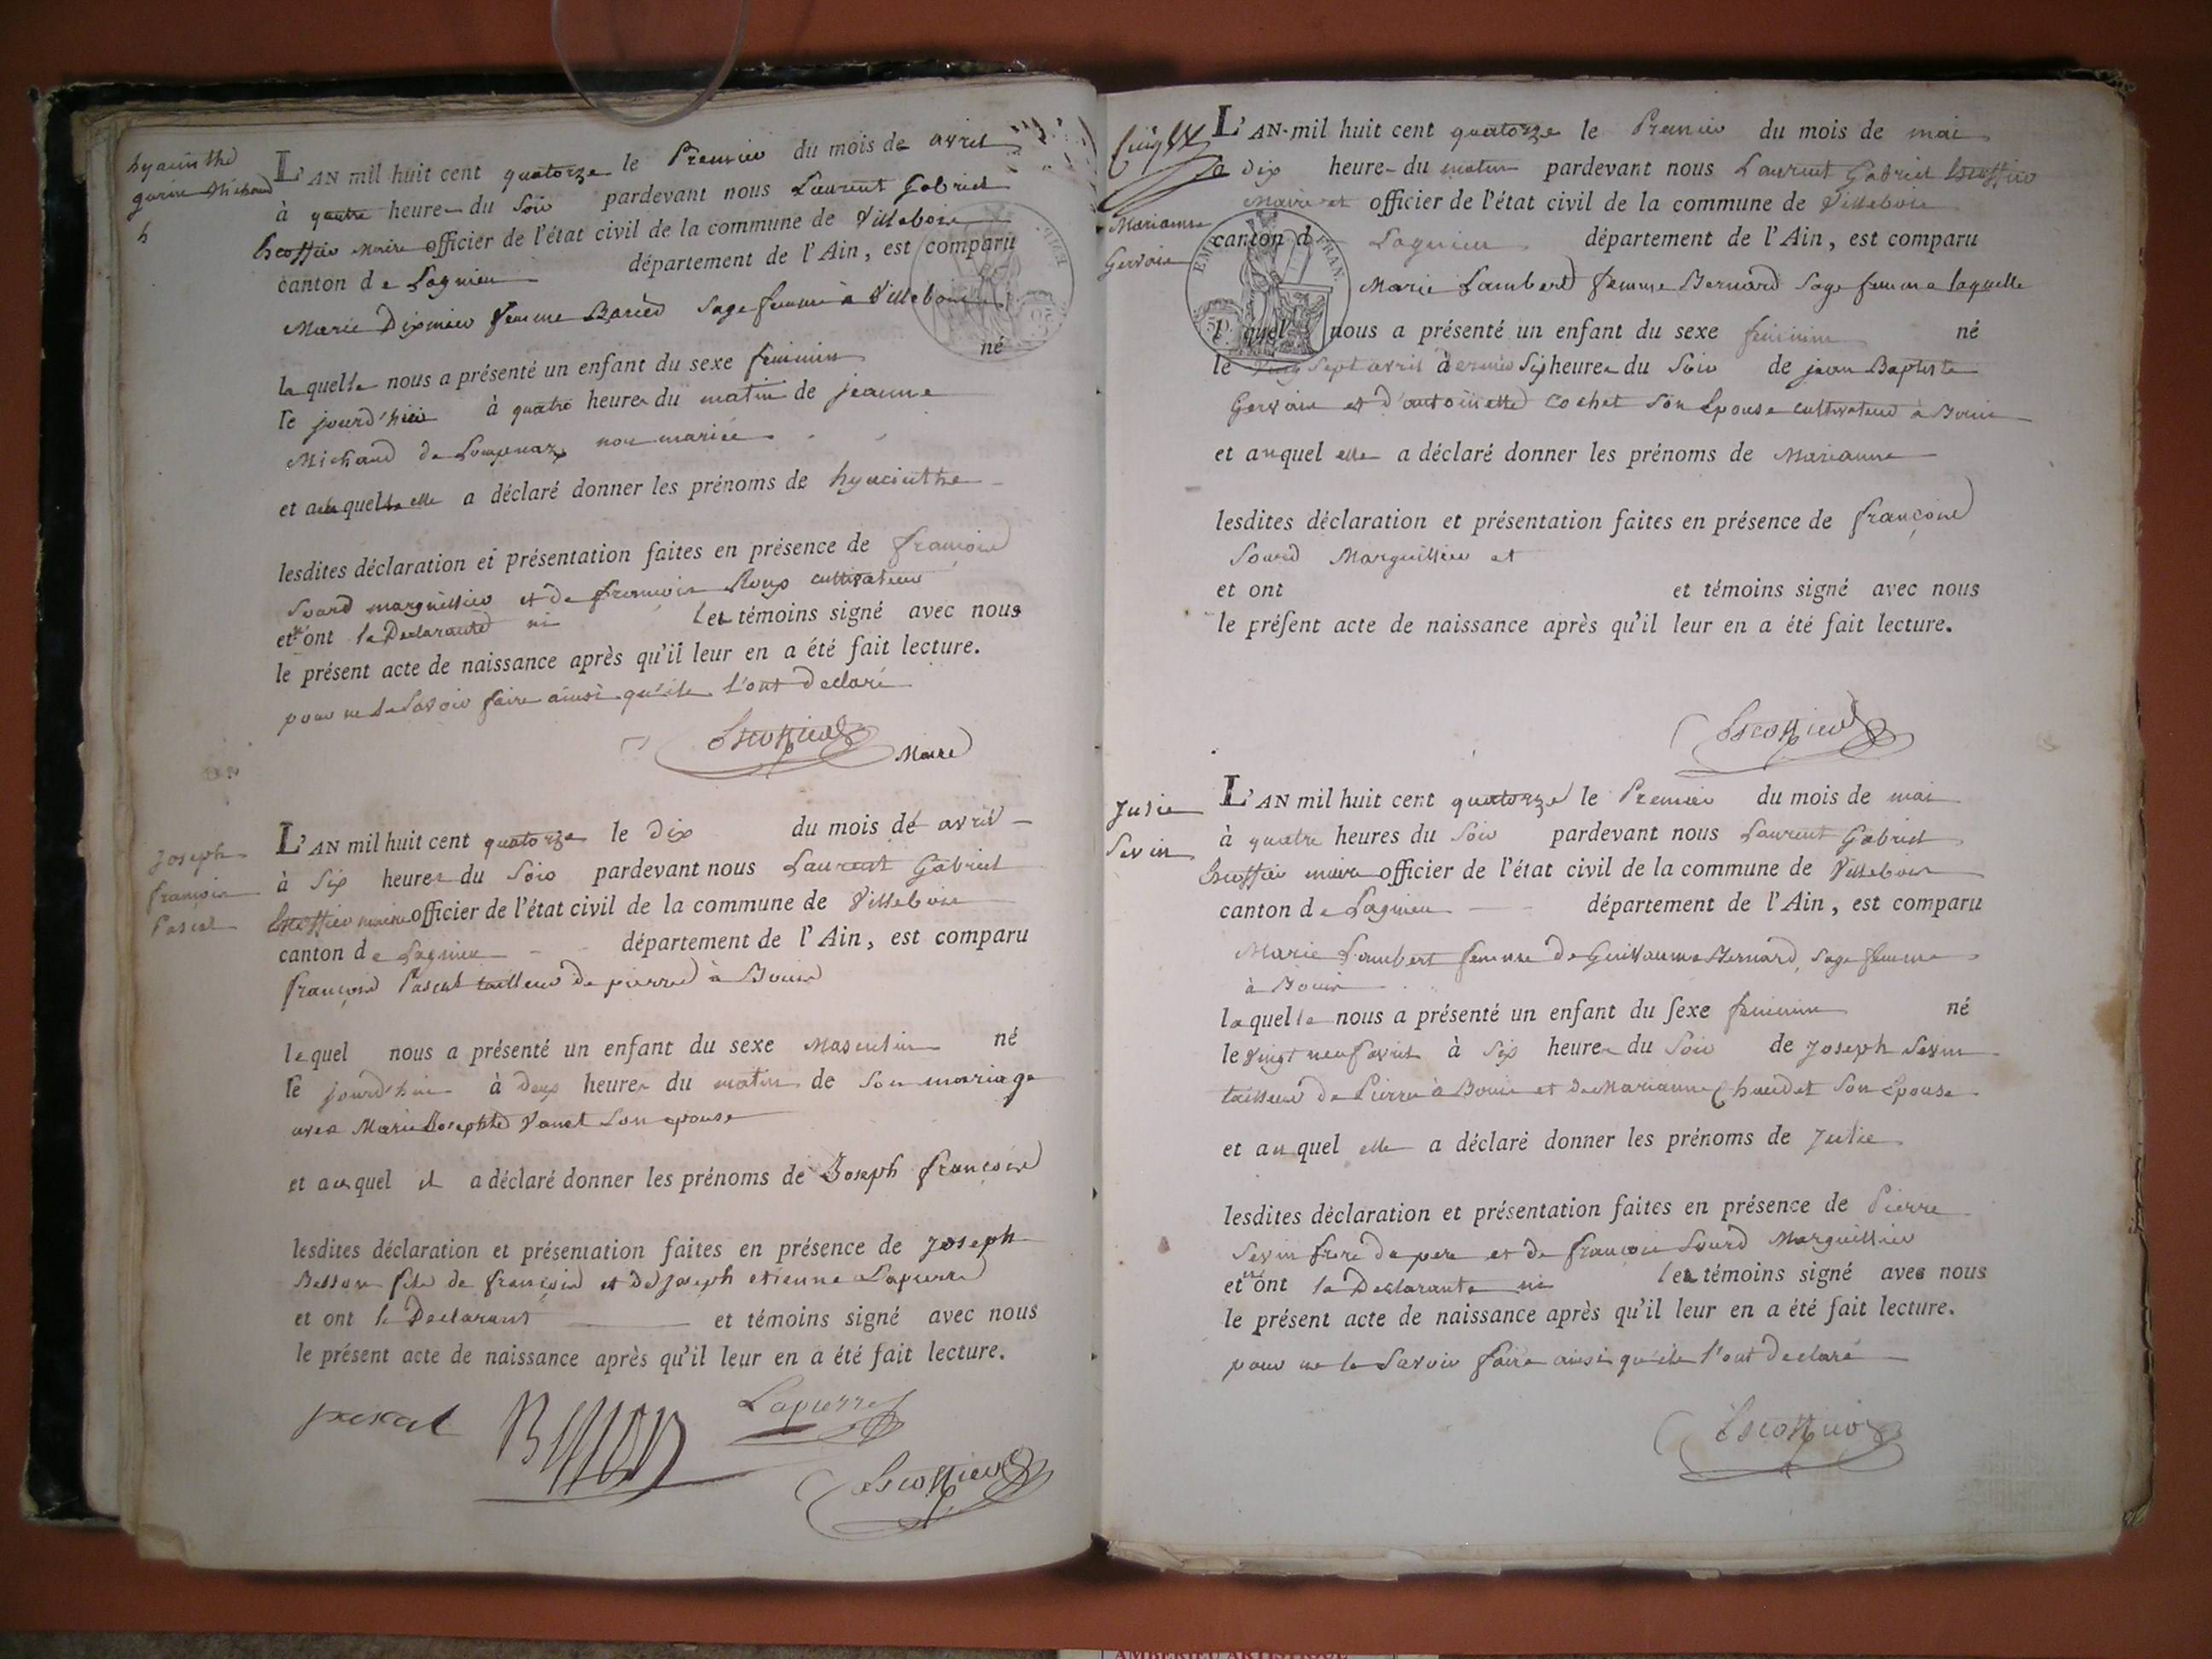 hyacinthe
Michaud
h
L'AN mil huit cent quatorze le Premier du mois de avril
à quatre heures du Soir pardevant nous Laurent Gabriel
Escoffier Maire officier de l'état civil de la commune de Villebois
canton de Lagnieu département de l'Ain, est comparu
Marie Dixmier femme Sage femme à Villebois
laquelle nous a présenté un enfant du sexe feminin né
le jourd'hui à quatre heures du matin de jeanne
Michaud de non mariée
et auquel elle a déclaré donner les prénoms de hyacinthe
lesdites déclaration et présentation faites en présence de françois
Sourd marguillier et de françois Roux cultivateur
et n'ont la Declarante ni les témoins signé avec nous
le présent acte de naissance après qu'il leur en a été fait lecture.
pour ne le Savoir faire ainsi qu'ils l'ont declaré
Escoffier
Maire
Joseph
françois
Pascal
L'AN mil huit cent quatorze le dix du mois de avril
à Six heures du Soir pardevant nous Laurent Gabriel
Escoffier maire officier de l'état civil de la commune de Villebois
canton de Lagnieu département de l'Ain, est comparu
françois Pascal tailleur de pierre à Bouis
lequel nous a présenté un enfant du sexe Masculin né
le jourd'hui à deux heures du matin de Son mariage
avec Marie Josephte Vanel Son epouse
et auquel il a déclaré donner les prénoms de Joseph françois
lesdites déclaration et présentation faites en présence de Joseph
Besson fils de françois et de Joseph etienne Lapierre
et ont le Declarant et témoins signé avec nous
le présent acte de naissance après qu'il leur en a été fait lecture.
pascal
Besson
Lapierre
Escoffier
Marianne
Gervais
L'AN mil huit cent quatorze le Premier du mois de mai
a dix heures du matin pardevant nous Laurent Gabriel Escoffier
Maire et officier de l'état civil de la commune de Villebois
canton d Lagnieu département de l'Ain, est comparu
EMP. FRAN.
Marie Lambert femme Bernard Sage femme laquelle
l quel nous a présenté un enfant du sexe feminin né
le Vingt Sept avril dernier Six heures du Soir de jean Baptiste
Gervais et d'antoinette Cochet Son Epouse cultivateur à Bouis
et auquel elle a déclaré donner les prénoms de Marianne
lesdites déclaration et présentation faites en présence de françois
Sourd Marguillier et
et ont et témoins signé avec nous
le présent acte de naissance après qu'il leur en a été fait lecture.
Escoffier
Julie
Sevin
L'AN mil huit cent quatorze le Premier du mois de mai
à quatre heures du Soir pardevant nous Laurent Gabriel
Escoffier maire officier de l'état civil de la commune de Villebois
canton de Lagnieu département de l'Ain, est comparu
Marie Lambert femme de Guillaume Bernard, Sage femme
à Bouis
laquelle nous a présenté un enfant du sexe feminin né
le vingt neuf avril à Six heures du Soir de Joseph Sevin
tailleur de Pierre à Bouis et de Marianne Chaudet Son Epouse
et auquel elle a déclaré donner les prénoms de Julie
lesdites déclaration et présentation faites en présence de Pierre
Sevin frere de pere et de françois Sourd Marguillier
et n'ont la Declarante ni les témoins signé avec nous
le présent acte de naissance après qu'il leur en a été fait lecture.
pour ne le Savoir faire ainsi qu'ils l'ont declaré
Escoffier